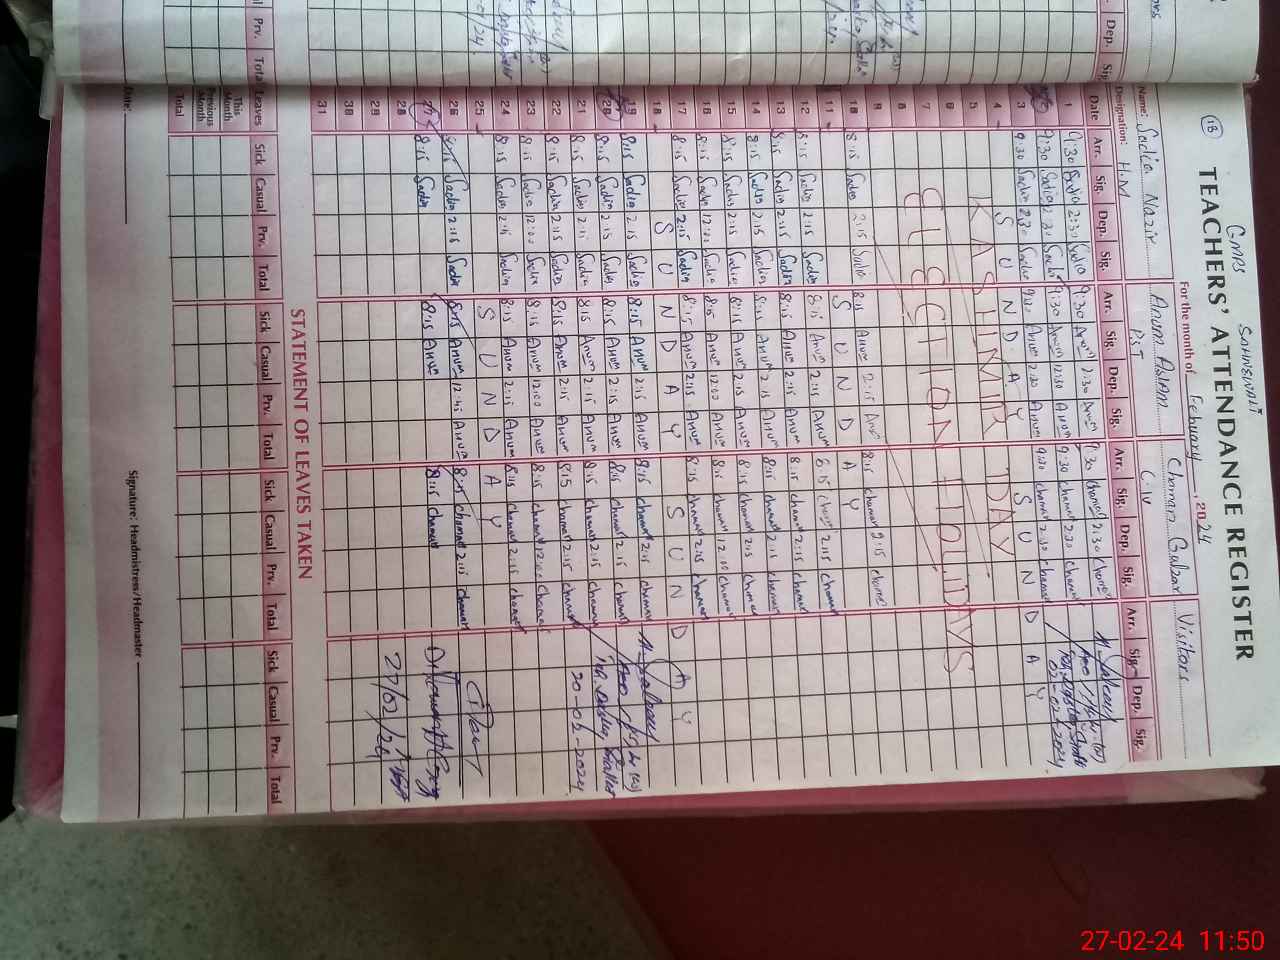 GMPS SOHNSIWALI
18 TEACHERS' ATTENDANCE REGISTER
For the month of February, 2024
Name: Sadia Nazir Anum Aslam Chaman Gulzar Visitors
Designation: H.M PST C-IV
Date Arr. Sig. Dep. Sig. Arr. Sig. Dep. Sig. Arr. Sig. Dep. Sig. Arr. Sig. Dep. Sig.
1 9:30 Sadia 2:30 Sadia 9:30 Anum 2:30 Anum 9:30 Chaman 2:30 Chaman
2 9:30 Sadia 12:30 Sadia 9:30 Anum 12:30 Anum 9:30 Chaman 2:30 Chaman
02-02-2024
3 9:30 Sadia 2:30 Sadia 9:30 Anum 2:30 Anum 9:30 Chaman 2:30 Chaman
4 S U N D A Y S U N D A Y
5 KASHMIR DAY
6
7 ELECTION HOLIDAYS
8
9
10 8:15 Sadia 2:15 Sadia 8:15 Anum 2:15 Anum 8:15 Chaman 2:15 Chaman
11 S U N D A Y
12 8:15 Sadia 2:15 Sadia 8:15 Anum 2:15 Anum 8:15 Chaman 2:15 Chaman
13 8:15 Sadia 2:15 Sadia 8:15 Anum 2:15 Anum 8:15 Chaman 2:15 Chaman
14 8:15 Sadia 2:15 Sadia 8:15 Anum 2:15 Anum 8:15 Chaman 2:15 Chaman
15 8:15 Sadia 2:15 Sadia 8:15 Anum 2:15 Anum 8:15 Chaman 2:15 Chaman
16 8:15 Sadia 12:00 Sadia 8:15 Anum 12:00 Anum 8:15 Chaman 12:00 Chaman
17 8:15 Sadia 2:15 Sadia 8:15 Anum 2:15 Anum 8:15 Chaman 2:15 Chaman
18 S U N D A Y S U N D A Y
19 8:15 Sadia 2:15 Sadia 8:15 Anum 2:15 Anum 8:15 Chaman 2:15 Chaman
20 8:15 Sadia 2:15 Sadia 8:15 Anum 2:15 Anum 8:15 Chaman 2:15 Chaman
21 8:15 Sadia 2:15 Sadia 8:15 Anum 2:15 Anum 8:15 Chaman 2:15 Chaman
20-02-2024
22 8:15 Sadia 2:15 Sadia 8:15 Anum 2:15 Anum 8:15 Chaman 2:15 Chaman
23 8:15 Sadia 12:00 Sadia 8:15 Anum 12:00 Anum 8:15 Chaman 12:00 Chaman
24 8:15 Sadia 2:15 Sadia 8:15 Anum 2:15 Anum 8:15 Chaman 2:15 Chaman
25 S U N D A Y
26 8:15 Sadia 2:15 Sadia 8:15 Anum 12:45 Anum 8:15 Chaman 2:15 Chaman
27 8:15 Sadia 8:15 Anum 8:15 Chaman
28 27/02/24
29
30
31
STATEMENT OF LEAVES TAKEN
Leaves Sick Casual Prv. Total Sick Casual Prv. Total Sick Casual Prv. Total Sick Casual Prv. Total
This Month
Previous Month
Total
Date: Signature: Headmistress/Headmaster
Dep. Sig.
Prv. Total
27-02-24 11:50